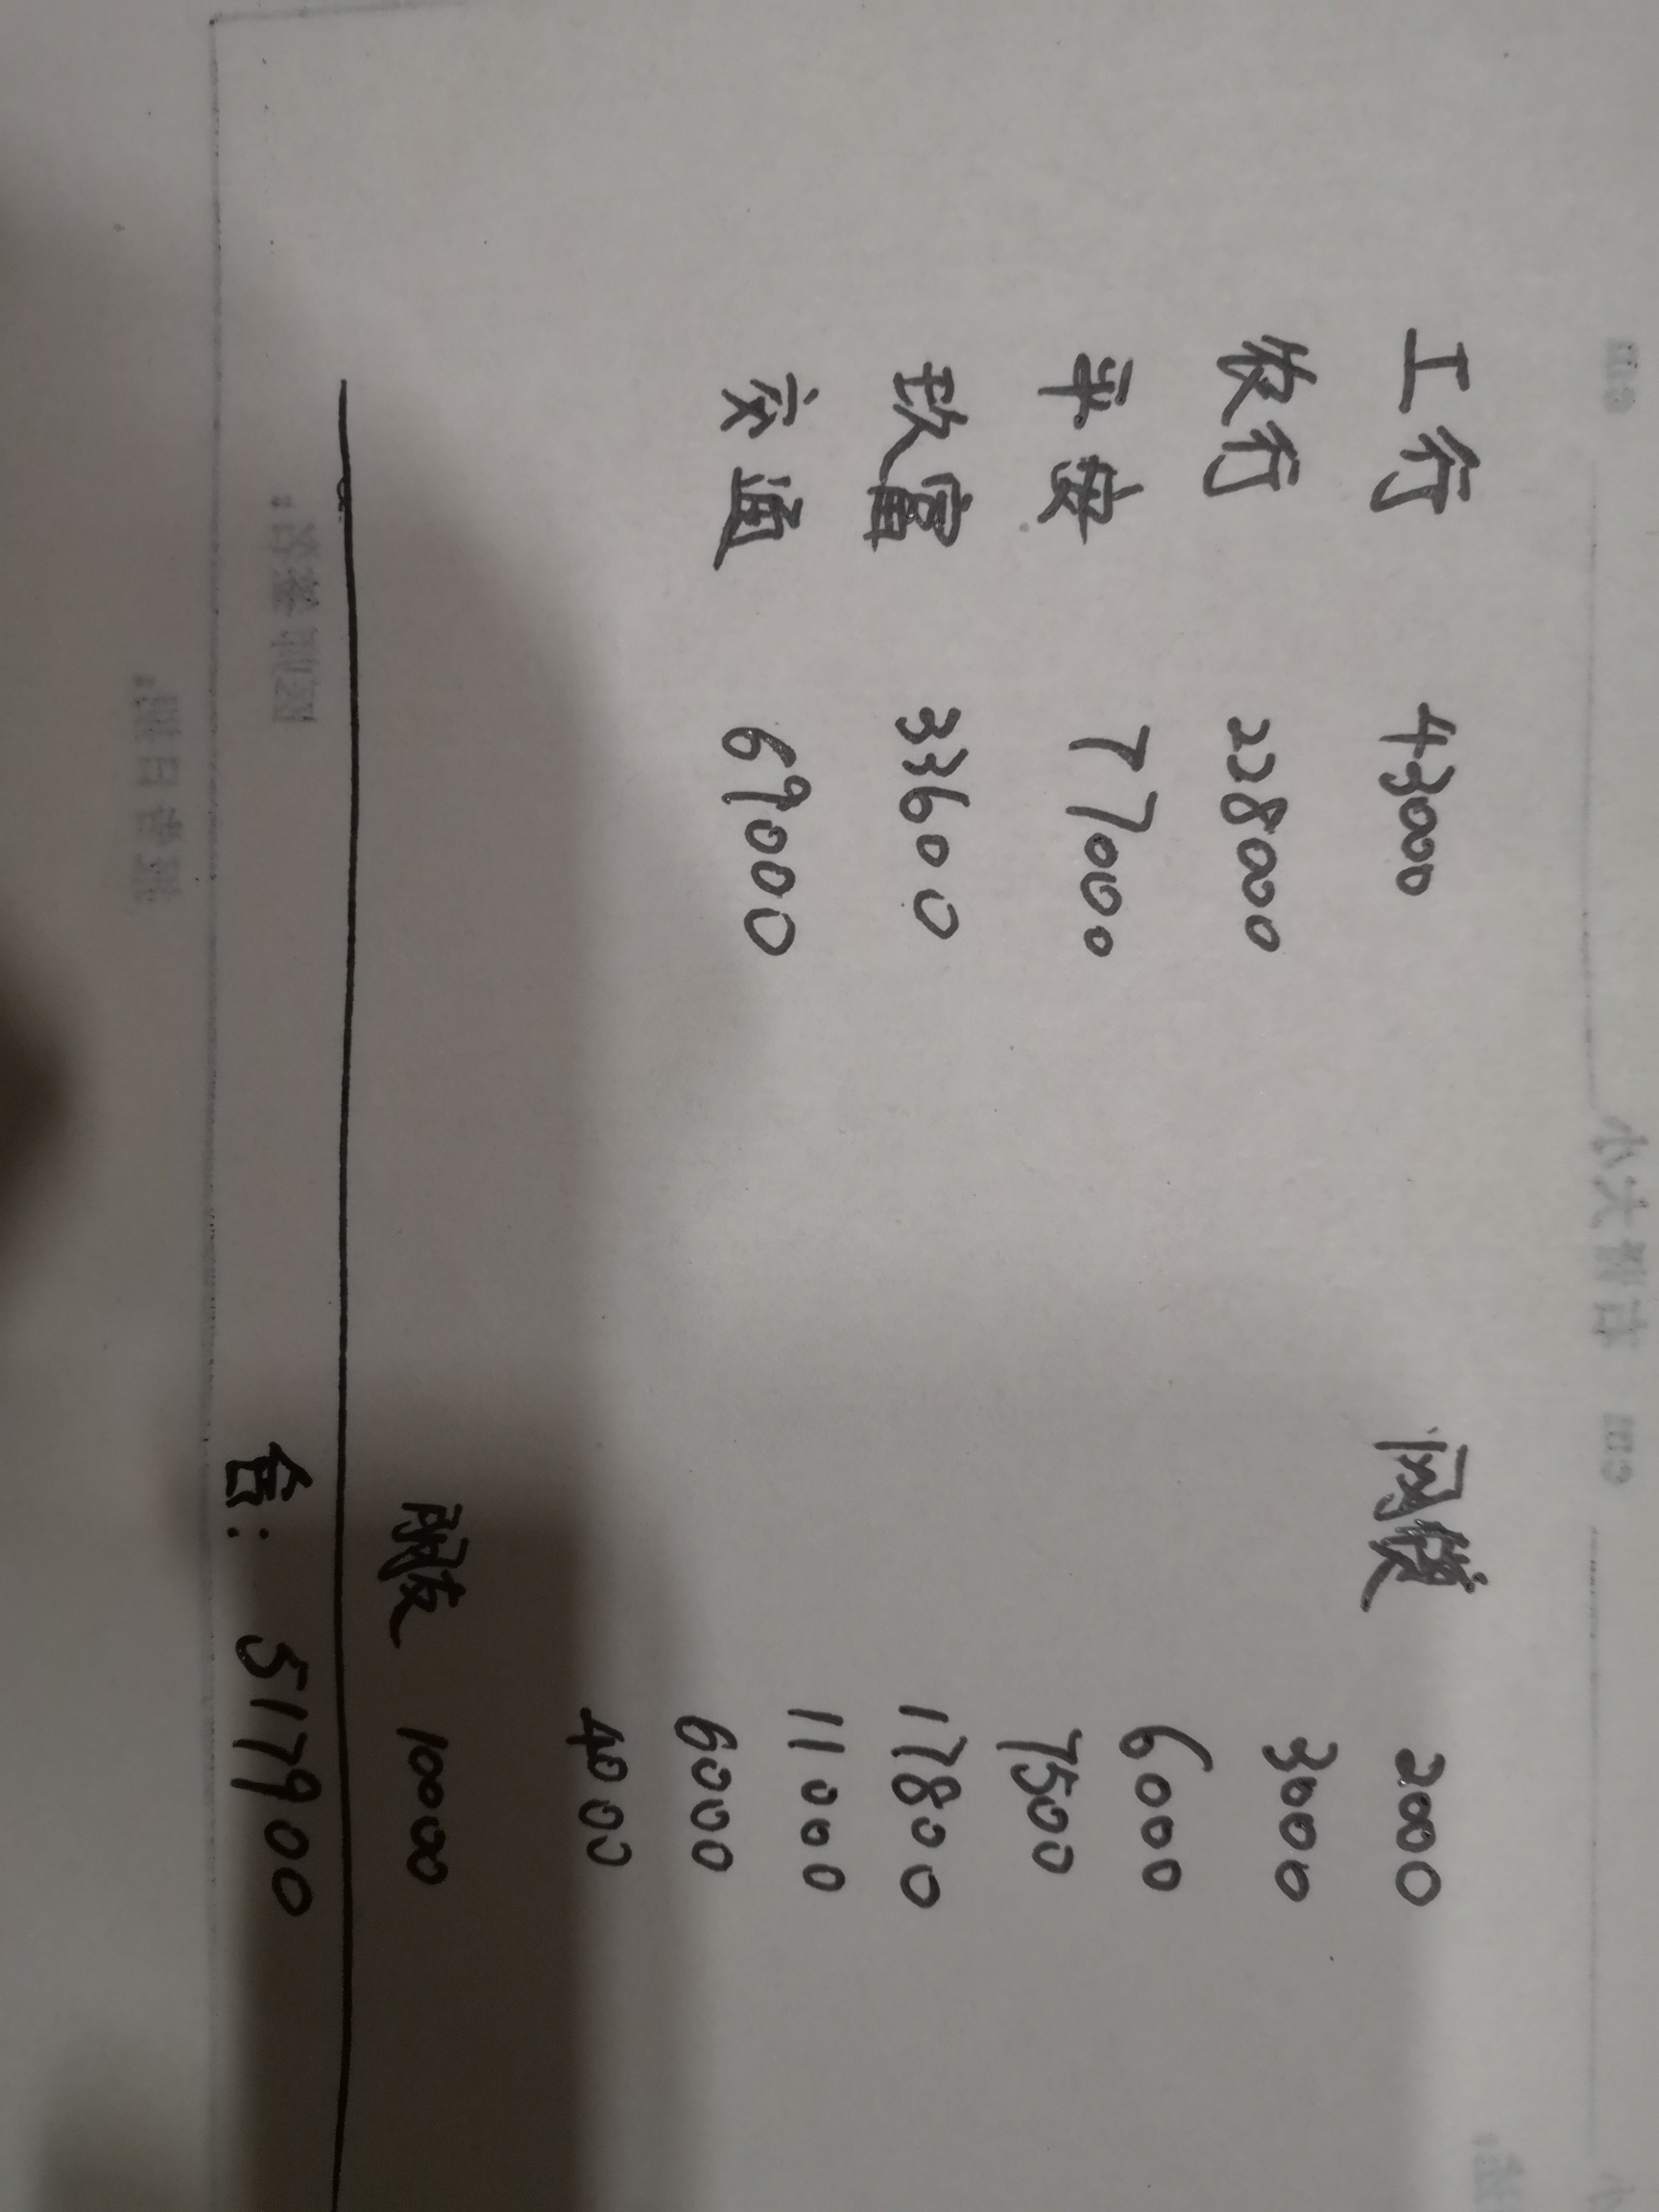 工行 43000
农行 228000
平安 77000
玖富 33600
交通 69000
网债 2000
3000
6000
7500
17800
11000
6000
4000
朋友 10000
合: 517900